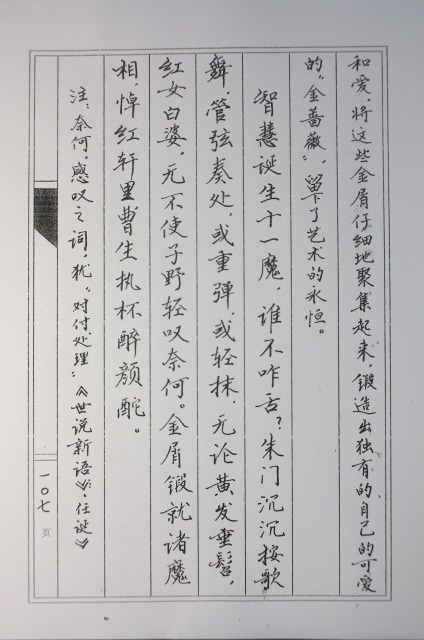 和爱，将这些金屑仔细地聚集起来，锻造出独有的自己的可爱
的“金蔷薇”，留下了艺术的永恒。
智慧诞生十一魔，谁不咋舌？朱门沉沉按歌
舞，管弦奏处，或重弹，或轻抹，无论黄发垂髫，
红女白婆，无不使子野轻叹奈何。金屑锻就诸魔
相，悼红轩里曹生执杯醉颜酡。
注：奈何，感叹之词，犹“对付，处理”《世说新语》·任诞》
一〇七 页